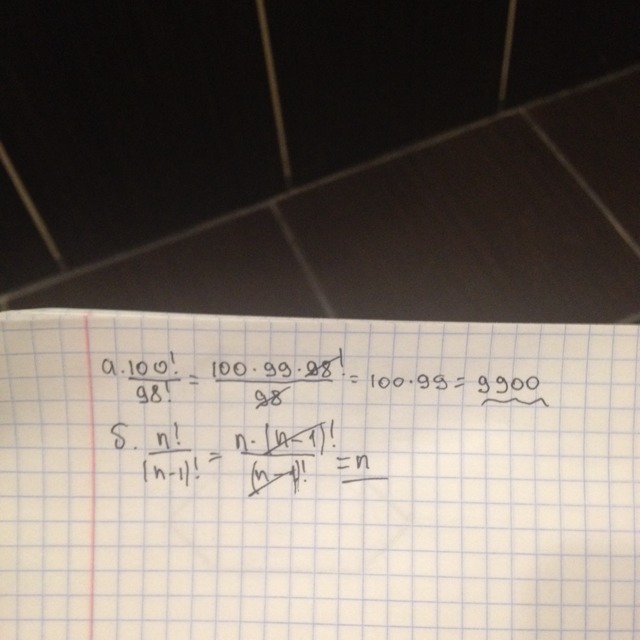 a. 100!/98! = 100·99·98!/98 = 100·99 = 9900
δ. n!/(n-1)! = n·(n-1)!/(n-1)! = n